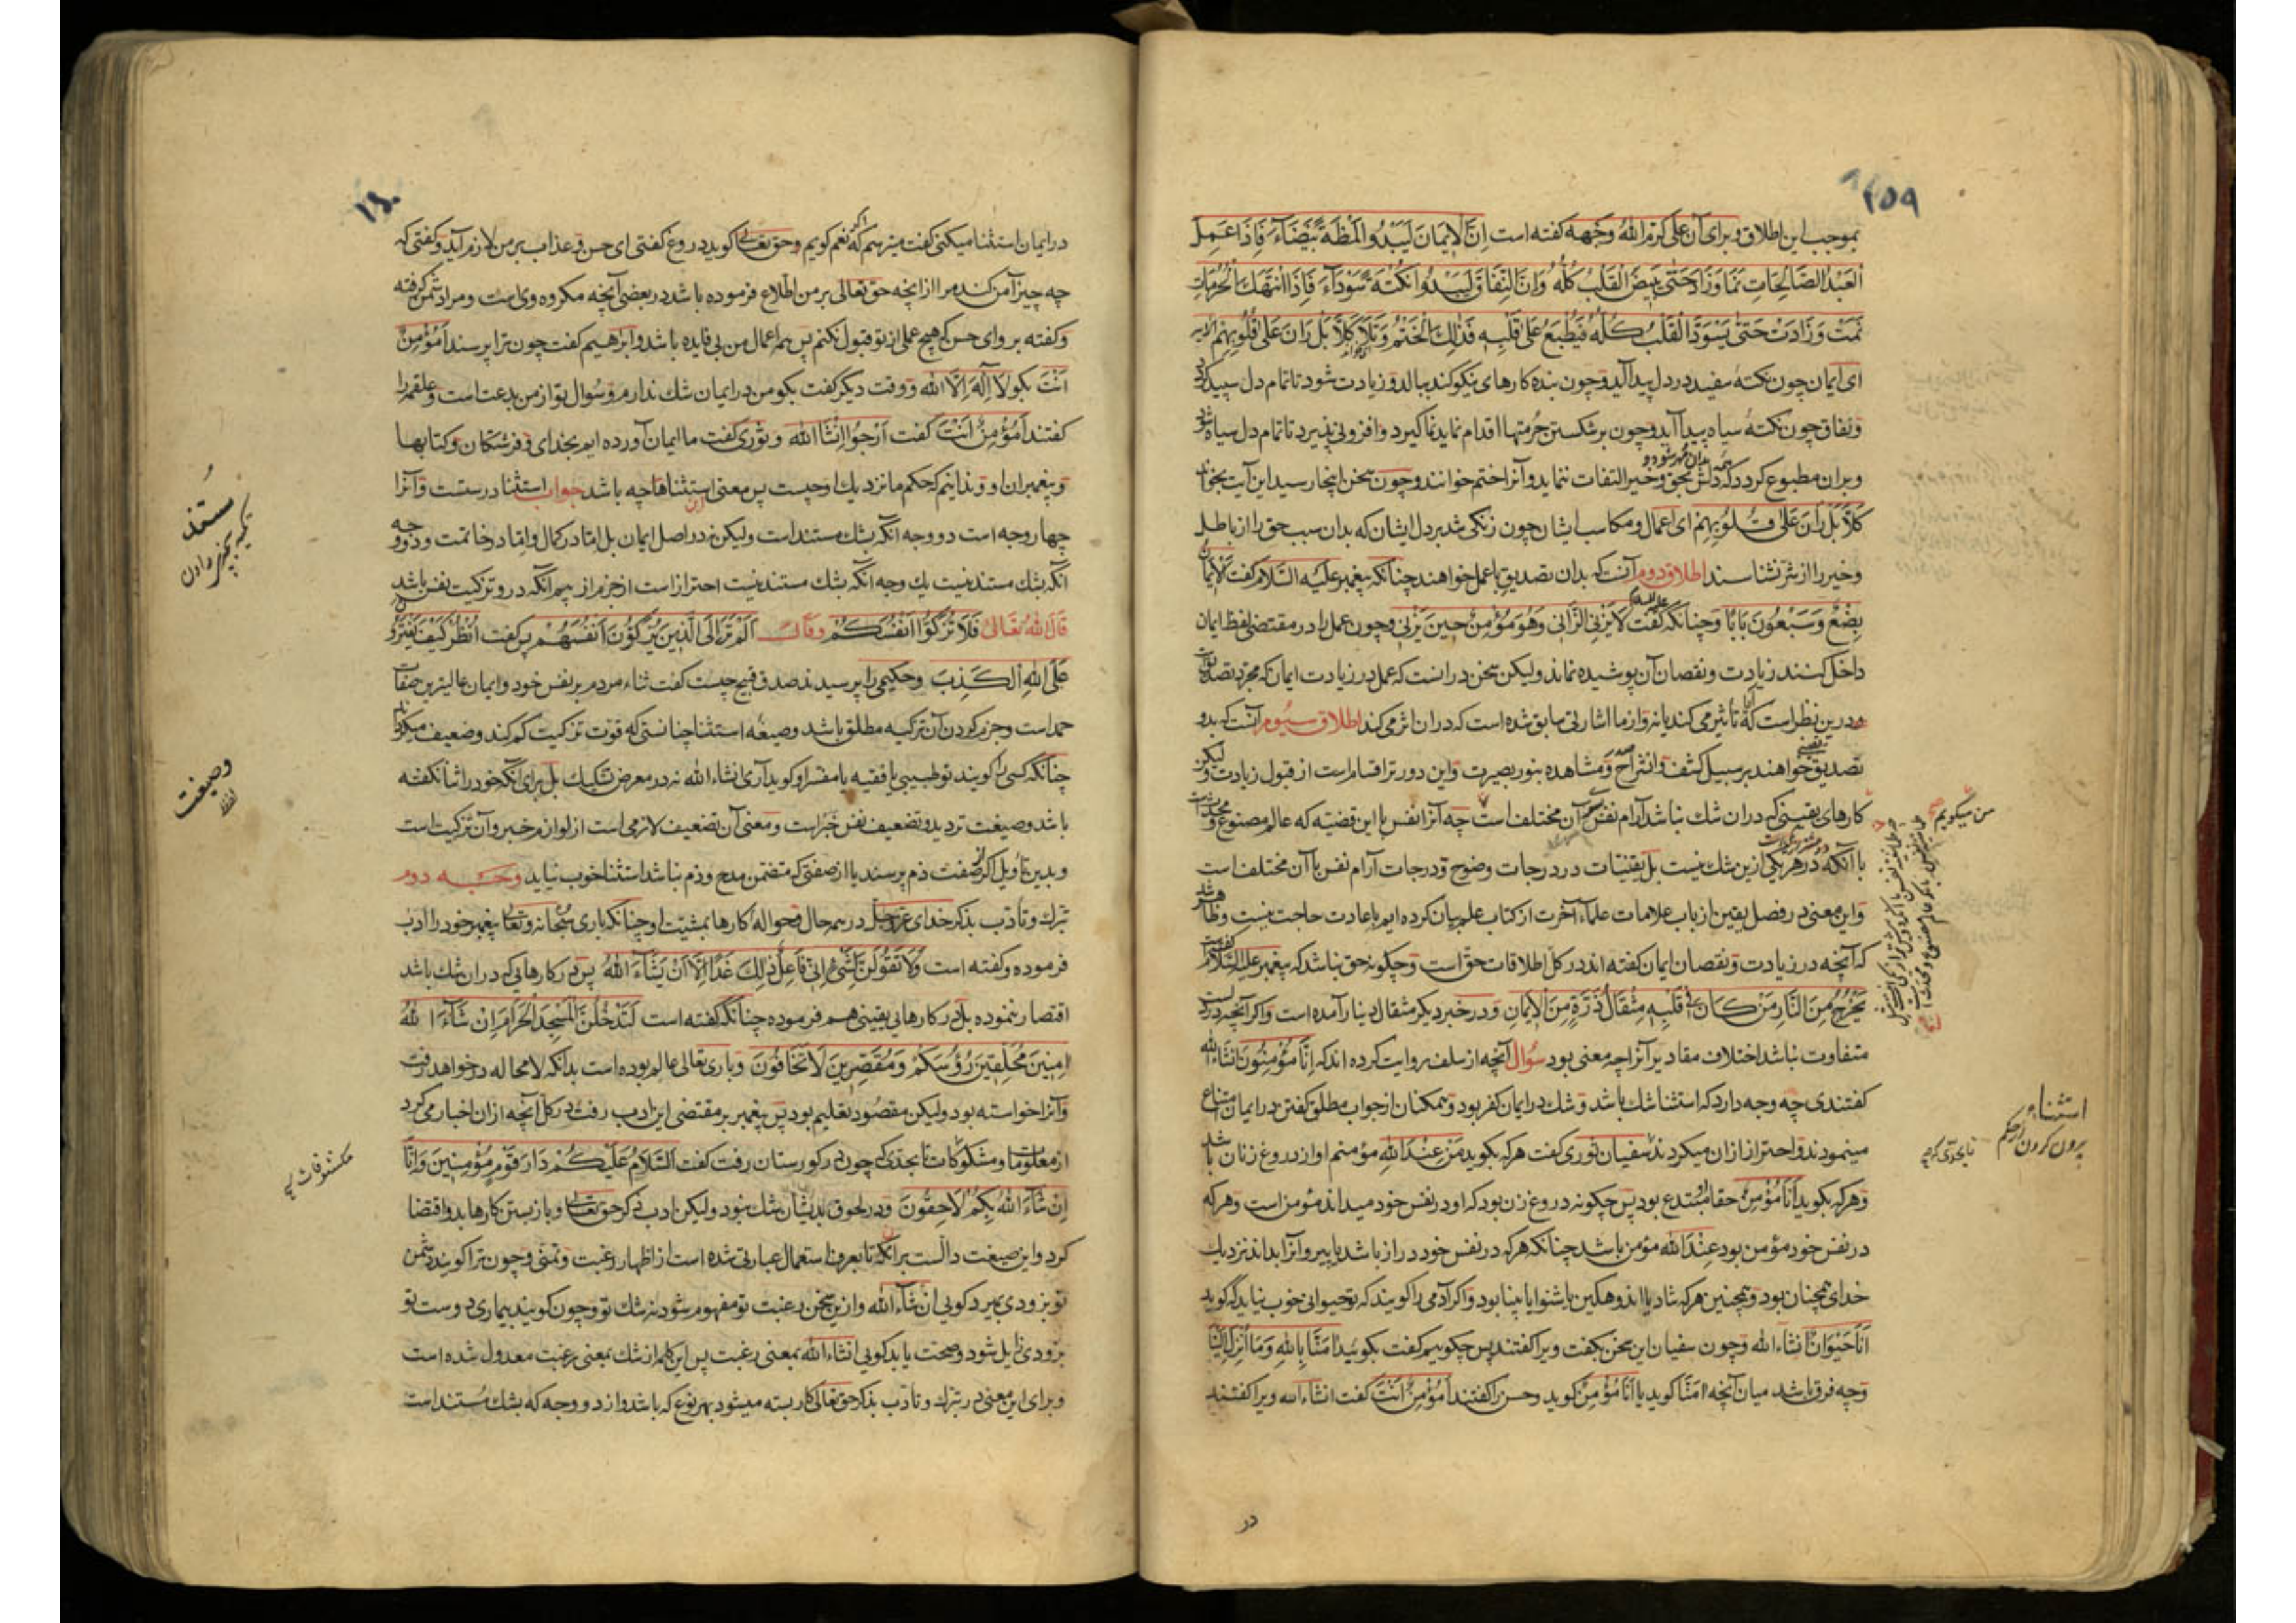 ۱۵۹
بموجب این اطلاق و برای آن علی کرم الله وجهه کفته است اِنَّ الْایمَانَ لَیَبْدُو الْمَظَةً بَیْضَآءَ فَاِذَا عَمِلَ
الْعَبْدُ الصَّالِحَاتِ نَمَا وَزَادَ حَتّٰی یَبْیَضَّ الْقَلْبُ کُلُّهُ وَاِنَّ النِّفَاقَ لَیَبْدُوا نُکْتَةً سَوْدَآءَ فَاِذَا انْتَهَكَ الْحُرُمَاتِ
نَمَتْ وَزَادَتْ حَتّٰی یَسْوَدَّ الْقَلْبُ کُلُّهُ فَیُطْبَعُ عَلٰی قَلْبِهِ فَذٰلِكَ الْخَتْمُ وَتَلَا کَلَّا بَلْ رَانَ عَلٰی قُلُوبِهِمْ الایه
ای ایمان چون نکتهٔ سفید در دل پیدا آید و چون بنده کارهای نیکو کند ببالد و زیادت شود تا تمام دل سپید کردد
و نفاق چون نکتهٔ سیاه پیدا آید و چون بر شکستن حرمتها اقدام نماید نما کیرد و افزونی پذیرد تا تمام دل سیاه شود
و بران مطبوع کردد که دلش بحق و خیر التفات ننماید و آنرا ختم خوانند و چون سخن اینجا رسید این آیت بخواند
کَلَّا بَلْ رَانَ عَلٰی قُلُوبِهِمْ ای اعمال و مکاسب ایشان چون زنکی شد بر دل ایشان که بدان سبب حق را از باطل
و خیر را از شر نشناسند اطلاق دوم آنست که بدان تصدیق با عمل خواهند چنانکه پیغمبر علیه السلام کفت الایمان
بِضْعٌ وَسَبْعُونَ بَابًا و چنانکه کفت لَا یَزْنِی الزَّانِی وَهُوَ مُؤْمِنٌ حِینَ یَزْنِی و چون عمل را در مقتضی لفظ ایمان
داخل کنند زیادت و نقصان آن پوشیده نماند ولیکن سخن در انست که عمل در زیادت ایمان که مجرد تصدیق بود
و درین نظر است که تأثیر می کند یا نه و از ما اشارتی سابق شده است که دران اثر می کند اطلاق سیوم آنست که بدو
تصدیق خواهند بر سبیل کشف و انشراح صدر و مشاهده بنور بصیرت و این دورتر اقسام است از قبول زیادت ولیکن
کارهای یقینی که دران شك نباشد آرام نفس آن مختلف است چه آنرا نفس با این قضیه که عالم مصنوع و محدث است
با آنکه در هر یکی ازین شك نیست بل یقینات در درجات وضوح و درجات آرام نفس با آن مختلف است
و این معنی در فصل یقین از باب علامات علماء آخرت از کتاب علم بیان کرده ایم باعادت حاجت نیست و ظاهر شد
که آنچه در زیادت و نقصان ایمان کفته اند در کل اطلاقات حق است و چکونه حق نباشد که پیغمبر علیه السلام کفت
یَخْرُجُ مِنَ النَّارِ مَنْ کَانَ فِی قَلْبِهِ مِثْقَالُ ذَرَّةٍ مِنَ الْاِیمَانِ و در خبر دیکر مثقال دینار آمده است و اکر آنچه در دلست
متفاوت نباشد اختلاف مقادیر آنرا چه معنی بود سؤال آنچه از سلف روایت کرده اند که اِنَّا مُؤْمِنُونَ انشاء الله
کفتندی چه وجه دارد که استثنا شك باشد و شك در ایمان کفر بود و همکنان از جواب مطلق کفتن در ایمان امتناع
مینمودند و احتراز ازان میکردند سفیان ثوری کفت هر که بکوید مَنْ عِنْدَ الله مؤمنم او از دروغ زنان باشد
و هر که بکوید اَنَا مُؤْمِنٌ حقا مبتدع بود پس چکونه دروغ زن بود که او در نفس خود میداند مؤمن است و هر که
در نفس خود مؤمن بود عِنْدَ الله مؤمن باشد چنانکه هر که در نفس خود دراز باشد یا پیر و آنرا بداند نزدیك
خدای همچنان بود و همچنین هر که شاد یا اندوهکین یا شنوا یا بینا بود و اکر آدمی را کویند که تو حیوانی خوب نیاید که کوید
اَنَا حَیْوَانٌ انشاء الله و چون سفیان این سخن بکفت ویرا کفتند پس چکوییم کفت بکویید اٰمَنَّا بِاللهِ وَمَا اُنْزِلَ اِلَیْنَا
و چه فرق باشد میان آنچه اٰمَنَّا کوید یا اَنَا مُؤْمِنٌ کوید و حسن را کفتند اَمُؤْمِنٌ اَنْتَ کفت انشاء الله ویرا کفتند
در
من میکویم
استثناء
برون کردن از حکم
۱۶۰
در ایمان استثنا میکنی کفت میترسم که نعم کویم و حق تعالی کوید دروغ کفتی ای حسن و عذاب بر من لازم آید و کفتی که
چه چیز آمن کند مرا از انچه حق تعالی بر من اطلاع فرموده باشد در بعضی آنچه مکروه وی است و مرا دشمن کرفته
و کفته برو ای حسن که هیچ عملی از تو قبول نکنم پس همه اعمال من بی فایده باشد و ابراهیم کفت چون ترا پرسند اَمُؤْمِنٌ
اَنْتَ بکو لَا اِلٰهَ اِلَّا الله و وقت دیکر کفت بکو من در ایمان شك ندارم و سؤال تو از من بدعت است و علقمه را
کفتند اَمُؤْمِنٌ اَنْتَ کفت اَرْجُوا انشاء الله و ثوری کفت ما ایمان آورده ایم بخدای و فرشتکان و کتابها
و پیغمبران او و ندانیم که حکم ما نزدیك او چیست پس معنی این استثناها چه باشد جواب استثنا درستست و آنرا
چهار وجه است دو وجه آنکه بشك مستند است ولیکن نه در اصل ایمان بل اما در کمال و اما در خاتمت و دو وجه
آنکه بشك مستند نیست یك وجه آنکه بشك مستند نیست احتراز است از جزم از بیم آنکه درو تزکیت نفس باشد
قال الله تعالی فَلَا تُزَکُّوا اَنْفُسَکُمْ و قال اَلَمْ تَرَ اِلَی الَّذِینَ یُزَکُّونَ اَنْفُسَهُمْ پس کفت اُنْظُرْ کَیْفَ یَفْتَرُونَ
عَلَی اللهِ الْکَذِبَ و حکیمی را پرسیدند صدق قبیح چیست کفت ثناء مردم بر نفس خود و ایمان عالیترین صفات
حمد است و جزم کردن آن تزکیه مطلق باشد و صیغهٔ استثنا چنانستی که قوت تزکیت کم کند و ضعیف میکرداند
چنانکه کسی را کویند تو طبیبی یا فقیه یا مفسر او کوید آری انشاء الله نه در معرض تشکیك بل برای آنکه خود را ثنا نکفته
باشد و صیغت تردید و تضعیف نفس خبر است و معنی آن تضعیف لازمی است از لوازم خبر و آن تزکیت است
و بدین تأویل اکر از صفت ذم پرسند یا از صفتی که متضمن مدح و ذم نباشد استثنا خوب نیاید وجه دوم
تبرك و تأدب بذکر خدای عزوجل در همه حال و حواله کارها بمشیت او چنانکه باری سبحانه و تعالی پیغمبر خود را ادب
فرموده و کفته است وَلَا تَقُولَنَّ لِشَیْءٍ اِنِّی فَاعِلٌ ذٰلِكَ غَدًا اِلَّا اَنْ یَشَآءَ الله پس در کارهایی که دران شك باشد
اقتصار ننموده بل در کارهایی یقینی هم فرموده چنانکه کفته است لَتَدْخُلُنَّ الْمَسْجِدَ الْحَرَامَ اِنْ شَآءَ الله
اٰمِنِینَ مُحَلِّقِینَ رُؤُسَکُمْ وَمُقَصِّرِینَ لَا تَخَافُونَ و باری تعالی عالم بوده است بدانکه لا محاله در خواهد رفت
و آنرا خواسته بود ولیکن مقصود تعلیم بود پس پیغمبر بر مقتضی این ادب رفت در کل آنچه ازان اخبار می کرد
از معلومات و مشکوکات تا بحدی که چون در کورستان رفت کفت اَلسَّلَامُ عَلَیْکُمْ دَارَ قَوْمٍ مُؤْمِنِینَ وَاِنَّا
اِنْ شَآءَ اللهُ بِکُمْ لَاحِقُونَ و در لحوق بدیشان شك نبود ولیکن ادب ذکر حق تعالی و باز بستن کارها بدو اقتضا
کرد و این صیغت دالست بر آنکه تا بعرف استعمال عبارتی شده است از اظهار رغبت و تمنی و چون ترا کویند دشمن
تو بزودی بمیرد کویی ان شآء الله و ازین سخن رغبت تو مفهوم شود نه شك تو و چون کویند بیماری دوست تو
بزودی زایل شود و صحت یابد کویی انشاء الله بمعنی رغبت پس این کلمه از شك بمعنی رغبت معدول شده است
و برای این معنی در تبرك و تأدب بذکر حق تعالی کار بسته میشود بهر نوع که باشد و از دو وجه که بشك مستند است
مستند
تکیه بچیزی دادن
وصیغت
لفظ